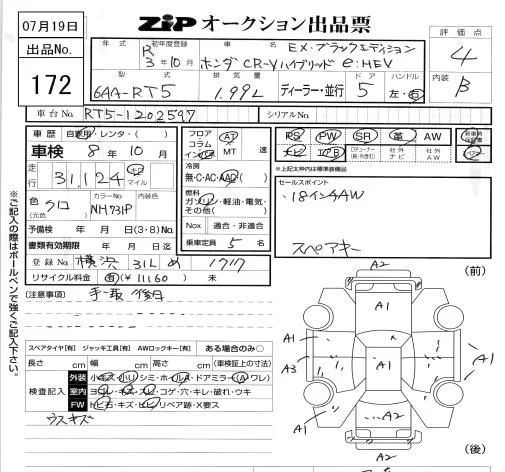 07月19日
ZiP オークション出品票
出品No.
172
年式
初年度登録
R 3年10月
車名
EX・ブラックエディション
ホンダ CR-Vハイブリッド e:HEV
評価点
4
内装
B
型式
6AA-RT5
排気量
1.99L
ディーラー・並行
ドア
5
ハンドル
左・右
車台No.
RT5-1202597
シリアルNo.
車歴
自家用・レンタ・( )
車検 8年 10月
走行
31,124
キロ
マイル
色(元色)
クロ
カラーNo.
NH731P
内装色
予備検 年 月 日(3・8)No.
書類有効期限 年 月 日迄
登録No 横浜 31L め 1717
リサイクル料金 有(¥11160) 未
フロア
コラム
インパネ
AT
MT
速
冷房
無・C・AC・AAC
燃料
ガソリン・軽油・電気・
その他( )
Nox
適合・非適合
乗車定員 5名
PS
PW
SR
革
AW
ナビ
エアB
社外ナビ
社外AW
新車時保証書
※上記太枠内は標準装備品
セールスポイント
・18インチAW
スペアキー
(注意事項)
手取後日
スペアタイヤ【有】 ジャッキ工具【有】 AWロックキー【有】 ある場合のみ○
長さ cm 幅 cm 高さ cm (車検証上の寸法)
検査記入
外装
小キズ・小凹・シミ・ホイルA・ドアミラー(A・ワレ)
室内
ヨゴレ・キズ・スレ・コゲ・穴・キレ・破れ・ウキ
FW
トビ石・キズ・ヒビ・リペア跡・X要ス
ウスキズ
※ご記入の際はボールペンで強くご記入下さい。
(前)
A2
A1
A1
A1
A1
A3
A1
A2
A2
(後)